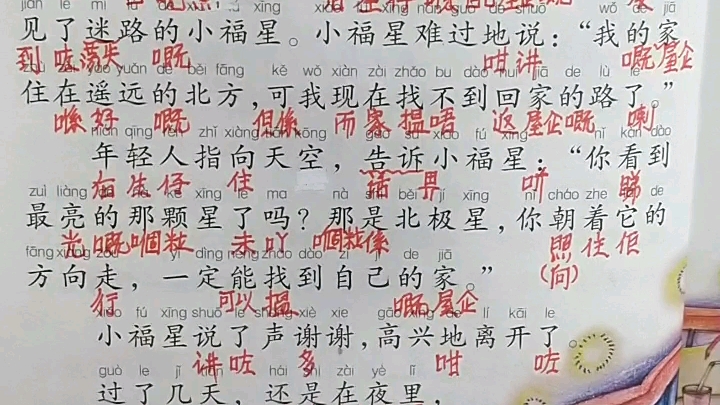 见了迷路的小福星。小福星难过地说：“我的家
到咗荡失 嘅 咁讲 嘅屋企
zhù zài yáo yuǎn de běi fāng kě wǒ xiàn zài zhǎo bu dào huí jiā de lù le
住在遥远的北方，可我现在找不到回家的路了。”
喺好 嘅 但係 而家揾唔 返屋企嘅 喇
nián qīng rén zhǐ xiàng tiān kōng gào su xiǎo fú xīng nǐ kàn dào
年轻人指向天空，告诉小福星：“你看到
后生仔 住 话畀 吖 睇
zuì liàng de nà kē xīng le ma nà shì běi jí xīng nǐ cháo zhe tā de
最亮的那颗星了吗？那是北极星，你朝着它的
光嘅嗰粒 未吖 嗰粒係 照住佢
fāng xiàng zǒu yí dìng néng zhǎo dào zì jǐ de jiā
方向走，一定能找到自己的家。”
行 可以揾 嘅屋企 (向)
xiǎo fú xīng shuō le shēng xiè xie gāo xìng de lí kāi le
小福星说了声谢谢，高兴地离开了。
讲咗 多 咁 咗
guò le jǐ tiān hái shì zài yè lǐ
过了几天，还是在夜里，